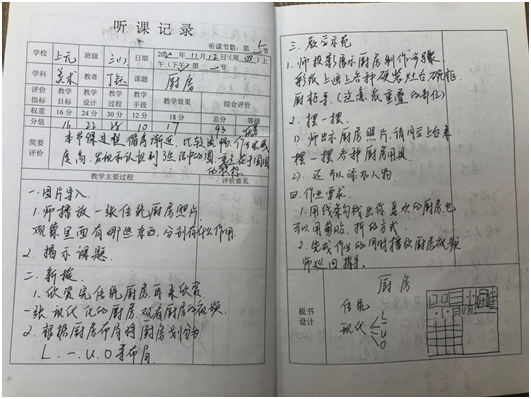 听课记录
听课节数:第 5 节
学校 上元 班级 三1 日期 年11月12日(周四)上午(下午)第二节
学科 美术 教者 课题 厨房
评价指标 教学目标 教学设计 教学过程 教学手段 教学效果 综合评价
权重 16分 24分 30分 12分 18分 总分 等级
分值 16 22 28 10 17 93
简要评价 本节课过程循序渐进,比较
教学主要过程 评价意见
一.图片导入
1.师播放一张传统厨房照片
观察里面有哪些东西,分别有什么作用
2.揭示课题
二.新授
1.欣赏完传统厨房,再来欣赏
一张现代化的厨房,观看厨房的视频
2.根据厨房布局将厨房划分为
L、一、U、O等布局
三.教学示范
1.师投影展示厨房制作步骤
彩纸上画上各种
厨柜等(注意表重叠的部位)
2.摆一摆
1)师出示厨房照片,请同学上台来
摆一摆各种厨房用具
2)还可以添加人物
四.作业要求
1.用线条勾线出你喜欢的厨房也
可以用剪贴、折的方式
2.完成作业的同时播放厨房视频
师巡回指导。
板书设计
厨房
传统
现代
L
一
U
O